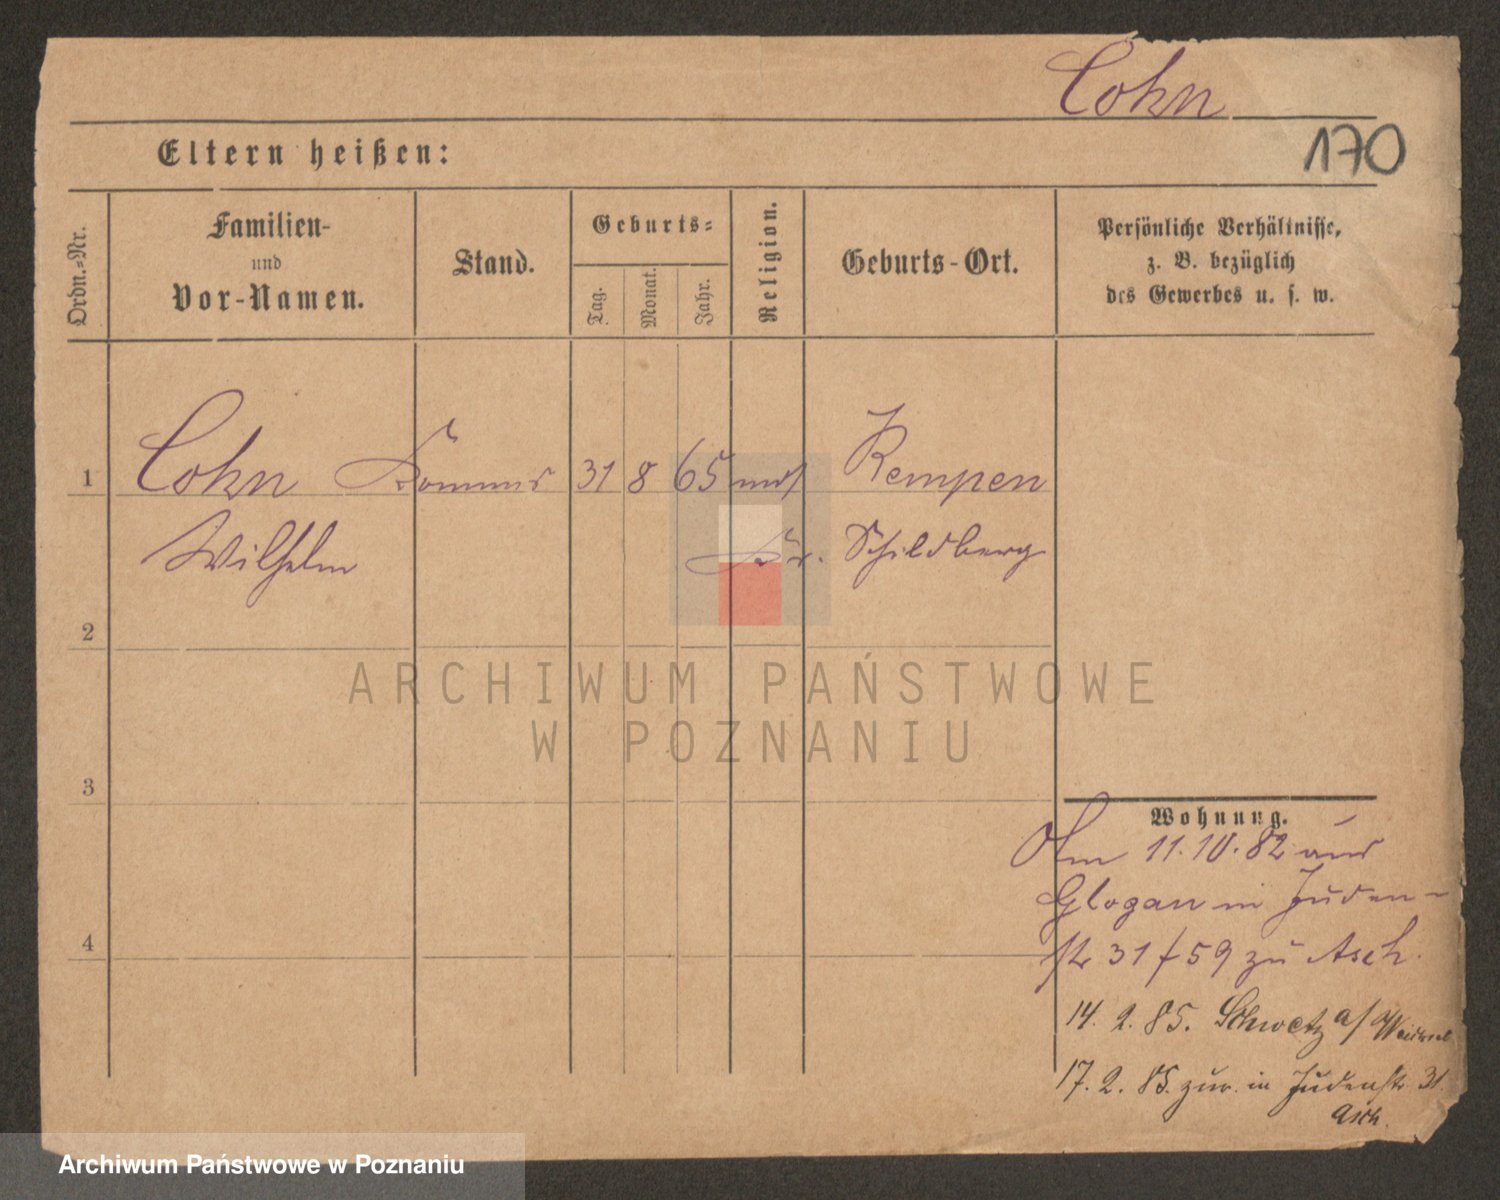 Cohn
170
Eltern heißen:
Ordn.-Nr.
Familien-
und
Vor-Namen.
Stand.
Geburts-
Tag.
Monat.
Jahr.
Religion.
Geburts-Ort.
Persönliche Verhältnisse,
z. B. bezüglich
des Gewerbes u. s. w.
1
Cohn
31
8
65
mos
Kempen
Wilhelm
Kr. Schildberg
2
ARCHIWUM PAŃSTWOWE
W POZNANIU
3
Wohnung.
11.10.82 aus
Glogau in Juden-
str 31/59 zu Asch.
4
14. 2. 85. Schwetz a/Weichsel
17. 2. 85. zur. in Judenstr 31.
Asch.
Archiwum Państwowe w Poznaniu